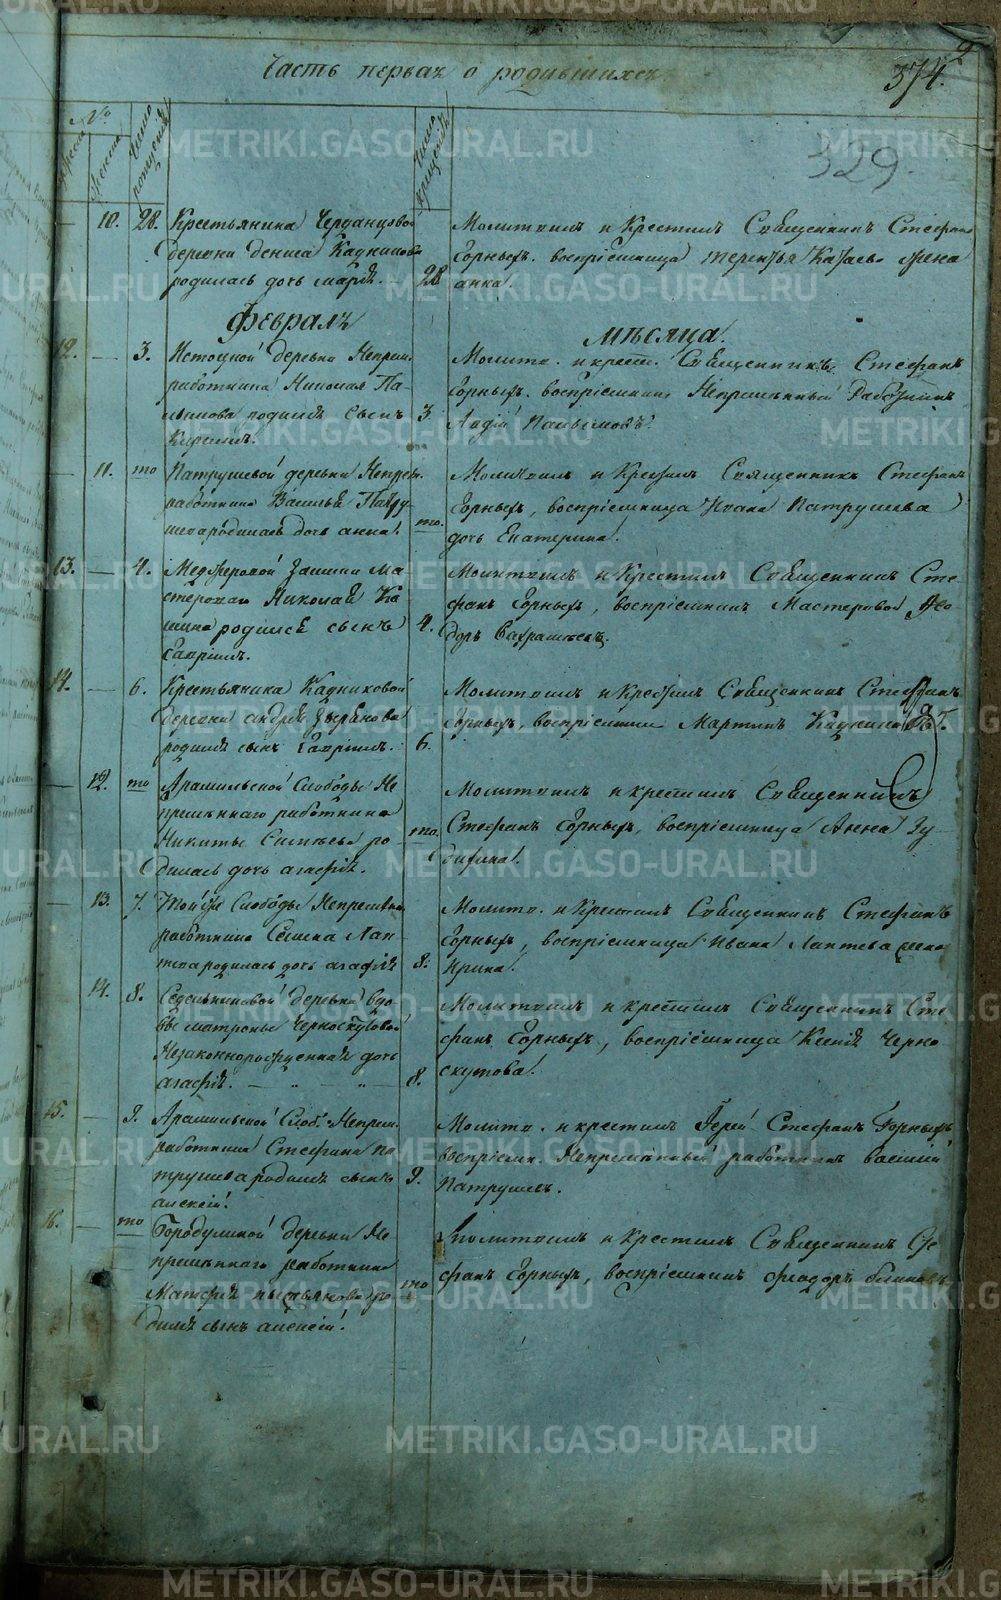 Часть первая о родившихся
374.
329.
№
10. 28. Крестьянина Черданцовой
деревни Дениса Кадникова
родилась дочь Марiя. 28
Молитвилъ и Крестилъ Священникъ Стефанъ
Горныхъ. воспрiемница Терентья жена
анна.
Февраль Мѣсяца.
12. — 3. Истоцкой деревни Непрем.
работника Николая
родился сынъ
Кирилъ. 3.
Молитв. и крест. Священникъ Стефанъ
Горныхъ. воспрiемникъ Непремѣнный Работникъ
11. то Патрушевой деревни Непрем.
работника Василья Патру
шева родилась дочь анна. то.
Молитвилъ и Крестилъ Священникъ Стефанъ
Горныхъ, воспрiемница Ивана Патрушева
дочь Екатерина.
13. — 4. заимки Ма
стероваго Николая Ка
шина родился сынъ
Гаврiилъ. 4.
Молитвилъ и Крестилъ Священникъ Сте
фанъ Горныхъ, воспрiемникъ Мастеровой Фео
доръ Вахрамѣевъ.
14. — 6. Крестьянина Кадниковой
деревни андрея Зырянова
родился сынъ Гаврiилъ. 6.
Молитвилъ и Крестилъ Священникъ Стефанъ
Горныхъ, воспрiемникъ Мартинъ Кадниковъ.
12. то Арамильской Слободы Не
премѣннаго работника
Никиты ро
дилась дочь агафiя. то.
Молитвилъ и крестилъ Священникъ
Стефанъ Горныхъ, воспрiемница Анна Зу
13. 7. Той же Слободы Непремѣн.
работника Семена Лап
тева родилась дочь агафiя 8.
Молитв. и Крестилъ Священникъ Стефанъ
Горныхъ, воспрiемница Ивана Лаптева жена
Ирина.
14. 8. Седельниковой деревни вдо
вы матроны Черноскутовой
Незаконнорожденная дочь
агафiя. 8.
Молитвилъ и крестилъ Священникъ Сте
фанъ Горныхъ, воспрiемница Ксенiя Черно
скутова.
15. — 9. Арамильской Слоб. Непрем.
работника Стефана Па
трушева родился сынъ
алексiй. 9.
Молитв. и крестилъ Iерей Стефанъ Горныхъ
воспрiемн. Непремѣнный работникъ василiй
Патрушевъ.
16. — то деревни Не
премѣннаго работника
Матфея ро
дился сынъ алексiй. то
Молитвилъ и Крестилъ Священникъ Сте
фанъ Горныхъ, воспрiемникъ феодоръ блиновъ.
METRIKI.GASO-URAL.RU